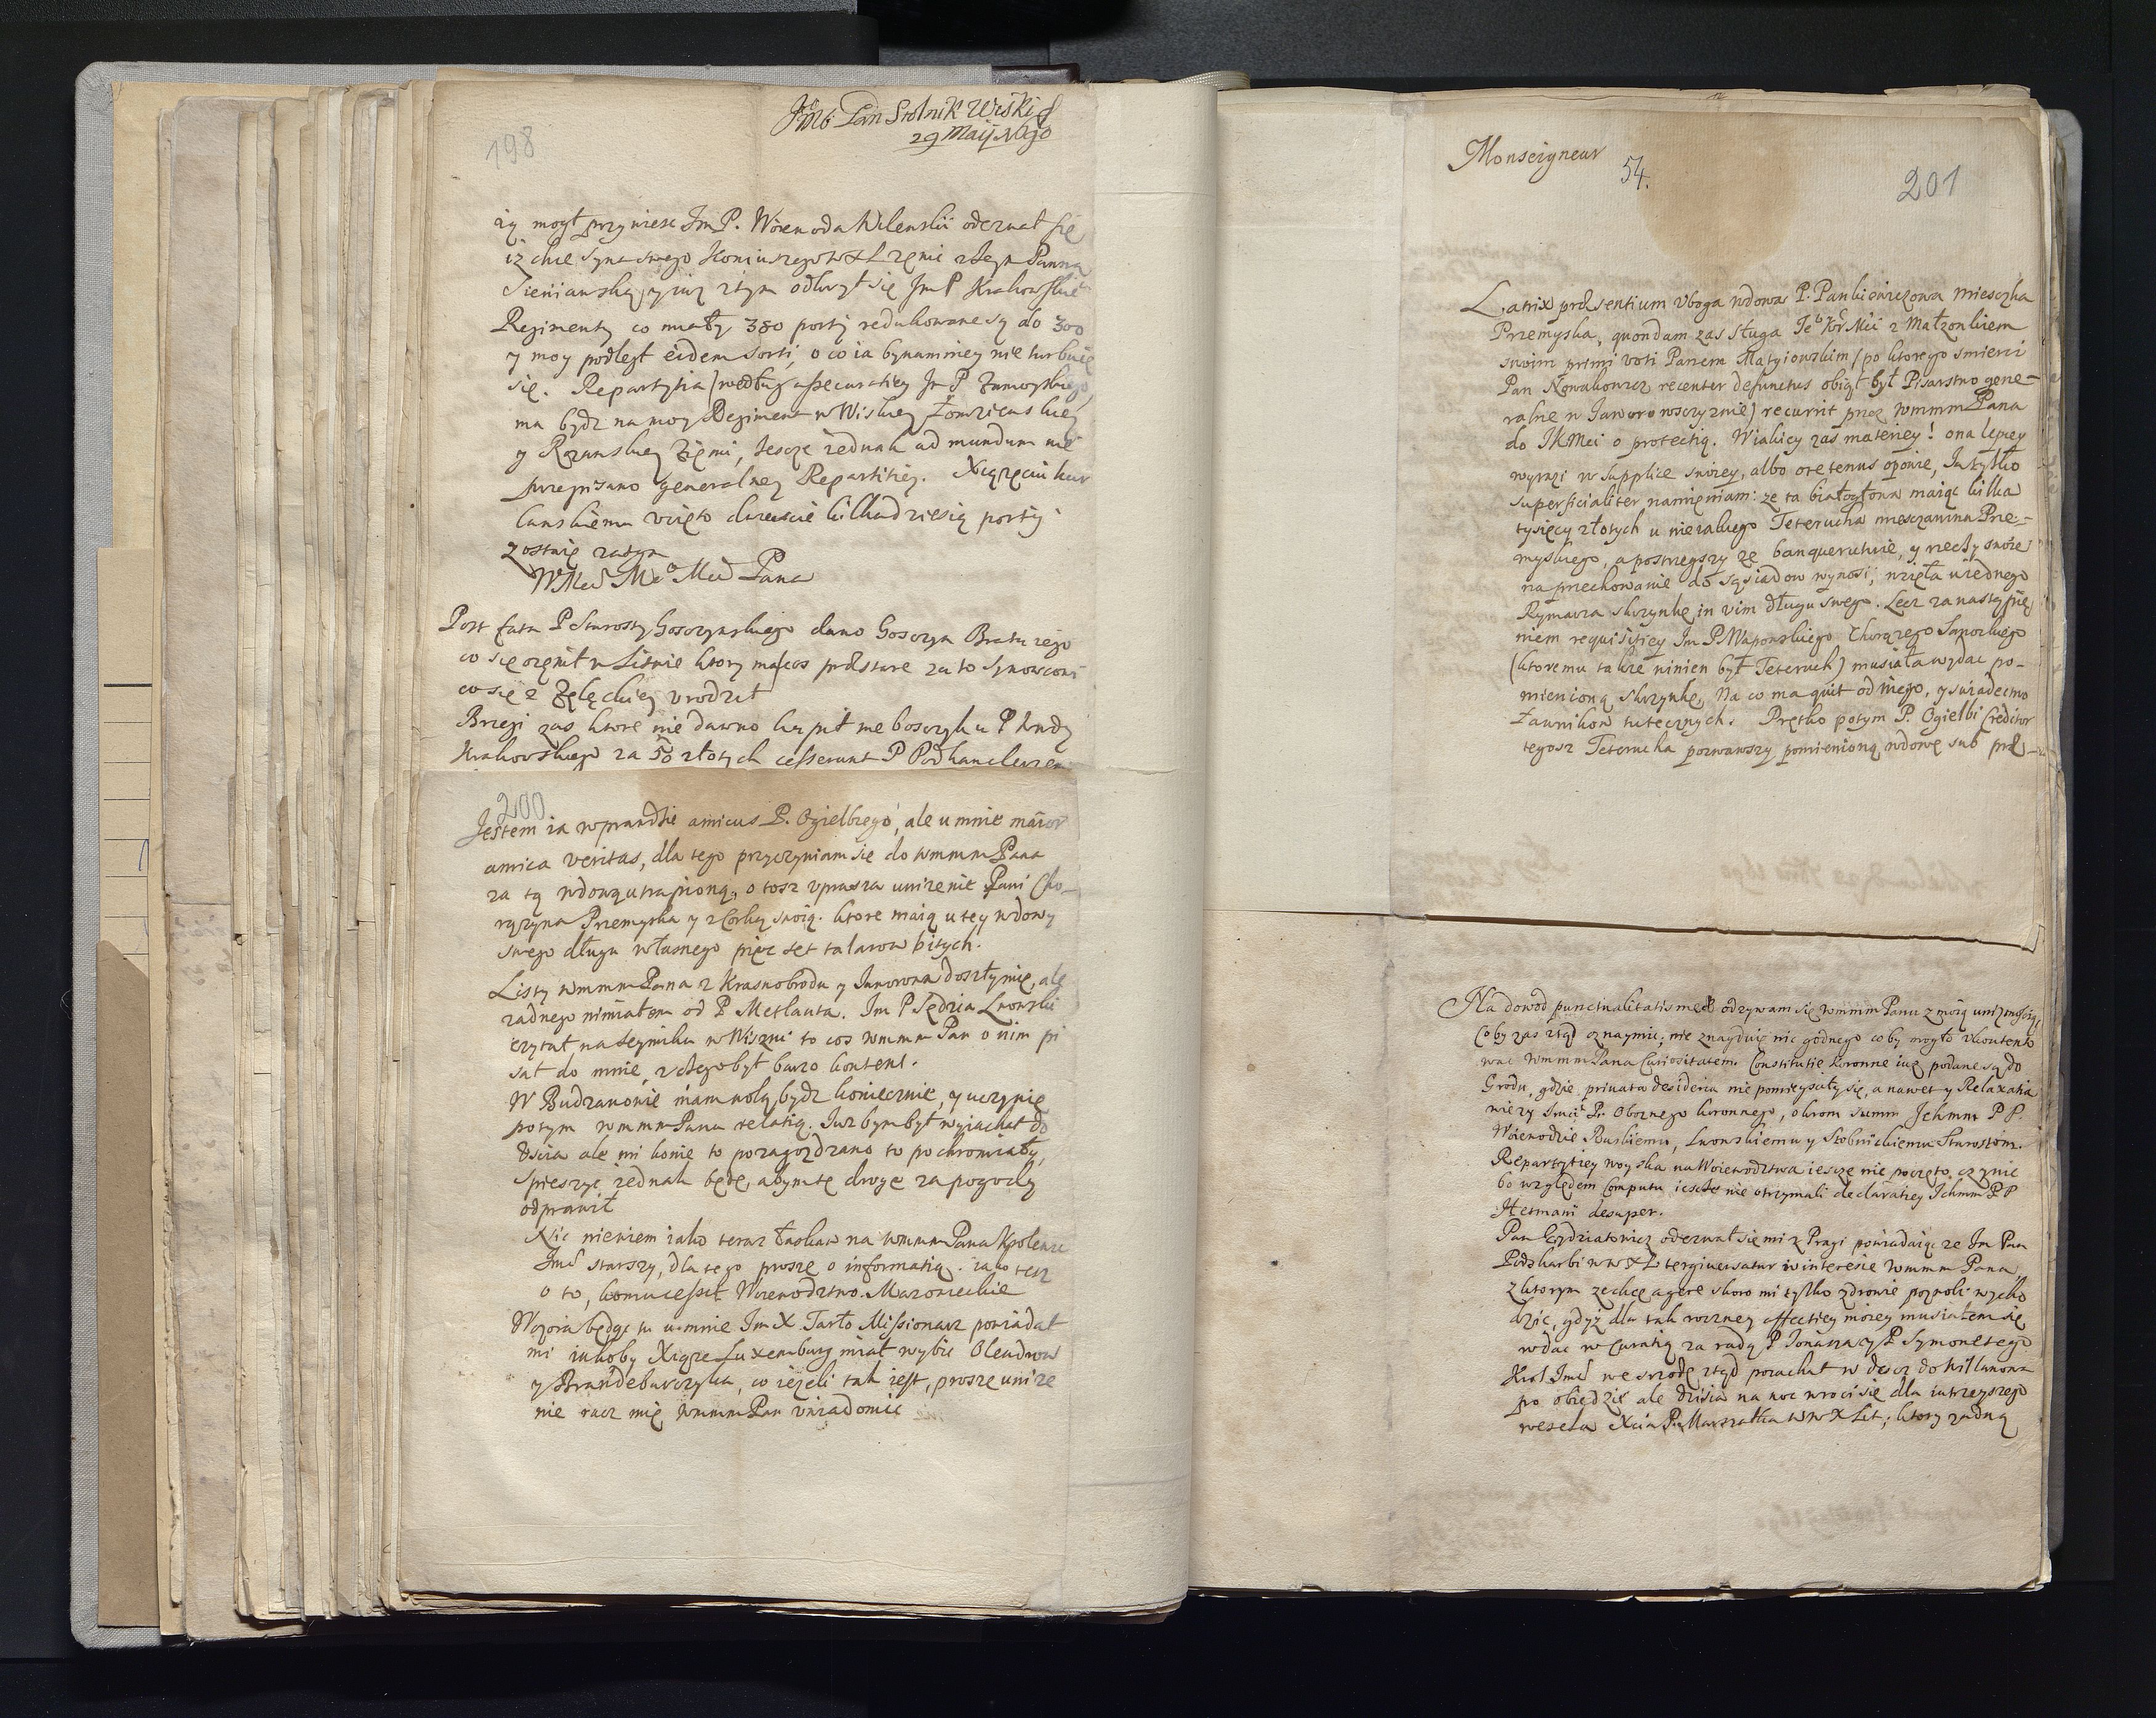 Jmć Pan Stolnik Wiski
29 Maij 1690
198
mogł przyniesc Jm P. Woiewoda Wilenskii odezwał się
iż chce syna swego Koniuszego WXL zenic z tegn Panną
Sieniawską, y iusz z tym odkrył się Jm P Krakowskie
Regimenty co miały 380 portij redukowane są do 300
y moy podległ eidem sorti, o co ia bynamniey nie turbuię
się. Repartytia (według assecuratiey Jm P Zamoyskiego
ma bydz na moy Regiment w Wiskiey Łomzienskiey
y Rozanskiey Ziemi, Jescze iednak ad mundum nie
przepisano generalney Repartitiey. Xiązęciu kur
lanskiemu vcięto dwiescie kilkadziesią portij
zostaię zatym
WMci Me° Mci Pana
Post fata P Starosty Gosczynskiego dano Gosczyn Bratu iego
co się ozenił w Litwie ktory ma kos prestare za to Synowcowi
co się z Zelęckiey vrodził
Brzegi zas ktore nie dawno kupił nieboszczyk u P Kudy
Krakowskiego za 50 złotych cesserunt P Podkanclerzem
200
Jestem ia wprawdzie amicus P. Ogielbiego, ale u mnie maior
amica veritas, dla tego przyczyniam się do wmmm Pana
za tą wdową utrapioną, o tosz vprasza unizenie Pani Cho-
rązyna Przemyska y z Corką swoią. ktore maią u tey wdowy
swego długu własnego pięc set talarow bitych.
Listy wmmm Pana z Krasnobrodu y Jaworowa doszły mię, ale
zadnego nimiałem od P Metlanta. Jm P Sędzia Lwowski
czytał na Seymiku w Wiszni to cos wmmm Pan o nim pi
sał do mnie, z czego był barzo kontent.
W Budzanowie mam wolą bydz koniecznie, y uczynię
potym wmmm Panu relatią. Jusz bym był wyiachał do
Vścia ale mi konie to pozagozdzano to pochromiały,
spieszyc iednak będę, abym tę drogę za pogody
odprawił
Nic niewiem iako teraz łaskaw na wmmm Pana Krolewic
Jmć starszy, dla tego proszę o informatią. iako tesz
o to, komu cessit Woiewodztwo Mazowieckie
Wczora będąc tu u mnie Jm X Tarło Missionarz powiadał
mi iakoby Xiąze Luxemburg miał wybic Olendrow
y Brandeburczyka, co iezeli tak iest, proszę unize
nie racz mię wmmm Pan vwiadomic
Monseigneur
54.
201
Latrix præsentium vboga wdowa P. Pankiewiczowa Miesczka
Przemyska, quondam zas sługa Je° Kor Mci z Małzonkiem
swoim primi voti Panem Matyiowskim (po ktorego smierci
Pan Nowakowicz recenter defunctus obiął był Pisarstwo gene-
ralne w Jaworowsczyznie) recurrit przez wmmm Pana
do JKMci o protectią. W iakiey zas materiey! ona lepiey
wyrazi w supplice swoiey, albo oretenus opowie, Ja tylko
superficialiter namieniam: ze ta białogłowa maiąc kilka
tysięcy złotych u nieiakiego Teterucha miesczanina Prze-
myskiego, a postrzegszy ze banquerutuie, y rzeczy swoie
na przechowanie do sąsiadow wynosi, wzięła u iednego
Rymarza skrzynkę in vim długu swego. Lecz za nastąpie
niem requisitiey Jm P Waponskiego Chorązego Sanockiego
(ktoremu takze winien był Teteruch) musiała wydac po-
mienioną skrzynkę, Na co ma quit od niego, y swiadectwo
Ławnikow tutecznych. Prętko potym P. Ogielbi Creditor
tegosz Teterucha pozwawszy pomienioną wdowę sub præ-
Na dowod punctualitatis meæ odzywam się wmmm Panu z moią unizonoscią,
Co by zas ztąd oznaymic, nie znayduię nic godnego co by mogło vkontento
wac wmmm Pana Curiositatem. Constitutie koronne iuz podane są do
Grodu, gdzie privata desideria nie pomieysciły się, a nawet y Relaxatia
wiezy Jmci P. Oboznego koronnego, okrom summ Jchmm P P.
Woiewodzie Ruskiemu, Lwowskiemu y Stobnickiemu Starostom.
Repartytiey woyska na Woiewodztwa iescze nie poczęto, czynic
bo względem Computu iescze nie otrzymali declaratiey Jchmm P P
Hetmani desuper.
Pan Giędziatowicz odezwał się mi z Pragi powiadaiąc ze Jm Pan
Podskarbi W W X L tergiversatur w interesie wmmm Pana
z ktorym zechcę agere skoro mi tylko zdrowie pozwoli wycho
dzic, gdyż dla tak roczney affectiey moiey musiałem się
wdac w Curatią za radą P Jonasza y P Symonetego
Krol Jmć we srzodę ztąd poiachał w descz do Willanowa
po obiedzie ale dzisia na noc wroci się dla iutrzeyszego
wesela Xcia P. Marszałka W W X Lit; ktory zadną